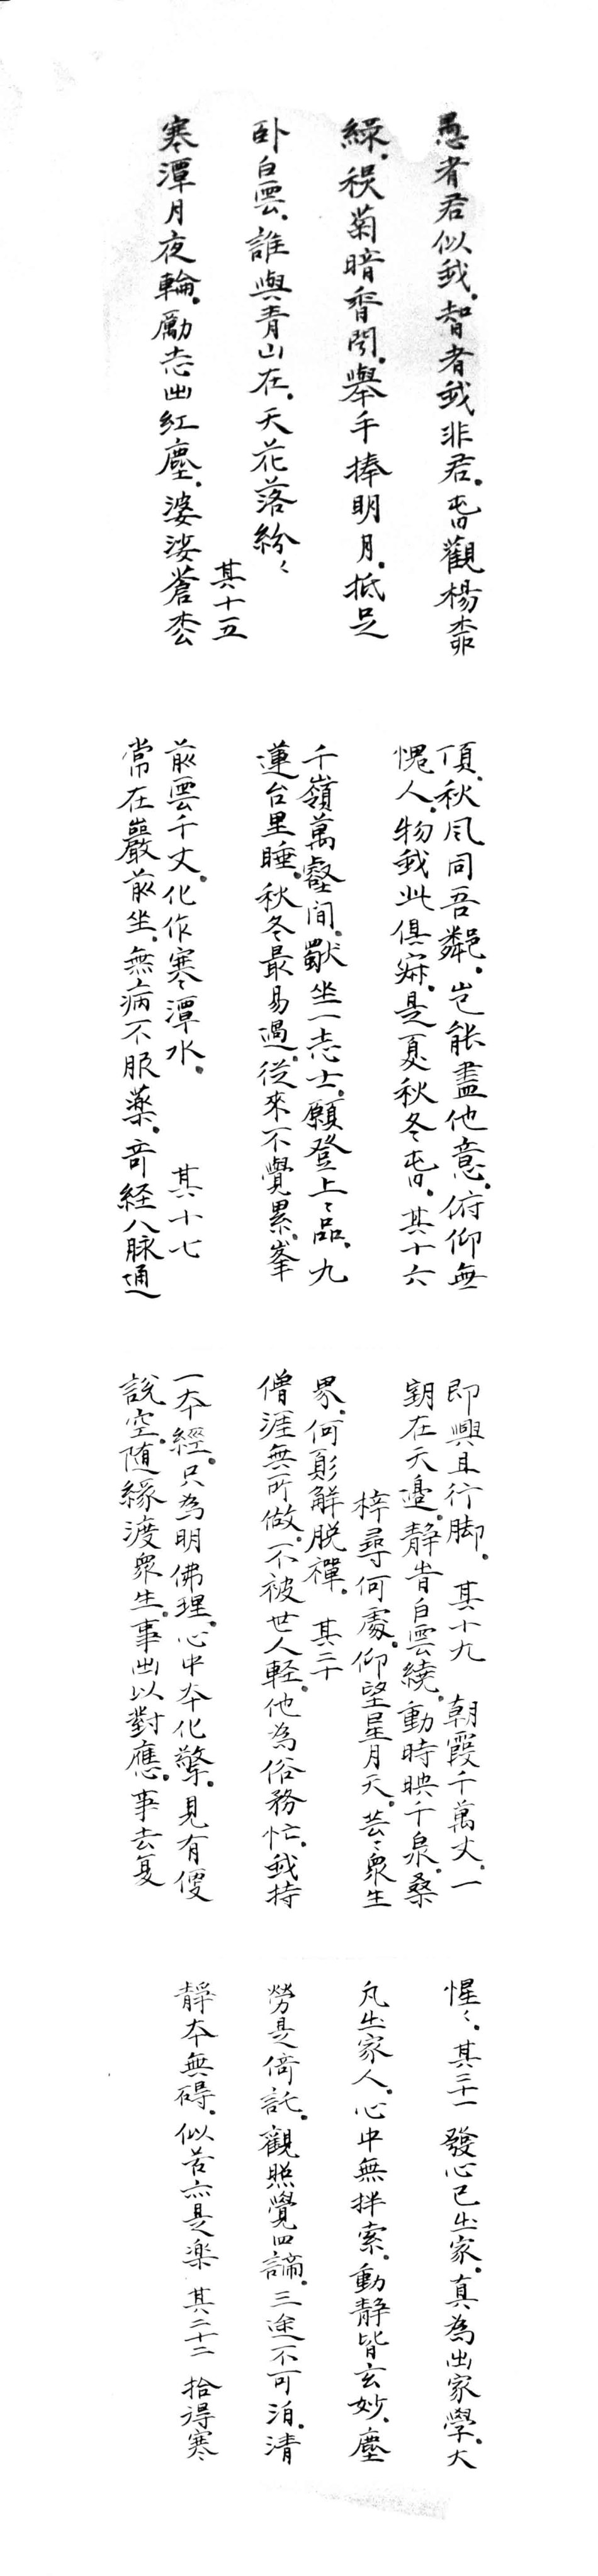 愚者君似我。智者我非君。旹觀楊柳
綠。秋菊暗香聞。舉手捧明月。抵足
卧白雲。誰與青山在。天花落紛〻
其十五
寒潭月夜輪。勵志出紅塵。婆娑蒼松
頂。秋風同吾鄰。岂能盡他意。俯仰無
愧人。物我此俱寂。是夏秋冬旹。其十六
千嶺萬壑間。獨坐一志士。願登上〻品。九
蓮台里睡。秋冬最易過。從來不覺累。峯
前雲千丈。化作寒潭水。 其十七
常在巖前坐。無病不服藥。奇経八脉通
即興且行脚。其十九 朝霞千萬丈。一
鈅在天邊。静旹白雲繞。動時映千泉。桑
梓尋何處。仰望星月天。芸〻衆生
界。何須解脱禪。其二十
僧涯無所做。不被世人軽。他為俗務忙。我持
一本經。只為明佛理。心中本化擎。見有便
說空。随緣渡衆生。事出以對應。事去复
惺〻。其二十一 發心已出家。真為出家學。大
凡出家人。心中無拌索。動靜皆玄妙。塵
勞是倚託。觀照覺四諦。三途不可泊。清
靜本無碍。似苦亦是楽 其二十二 拾得寒